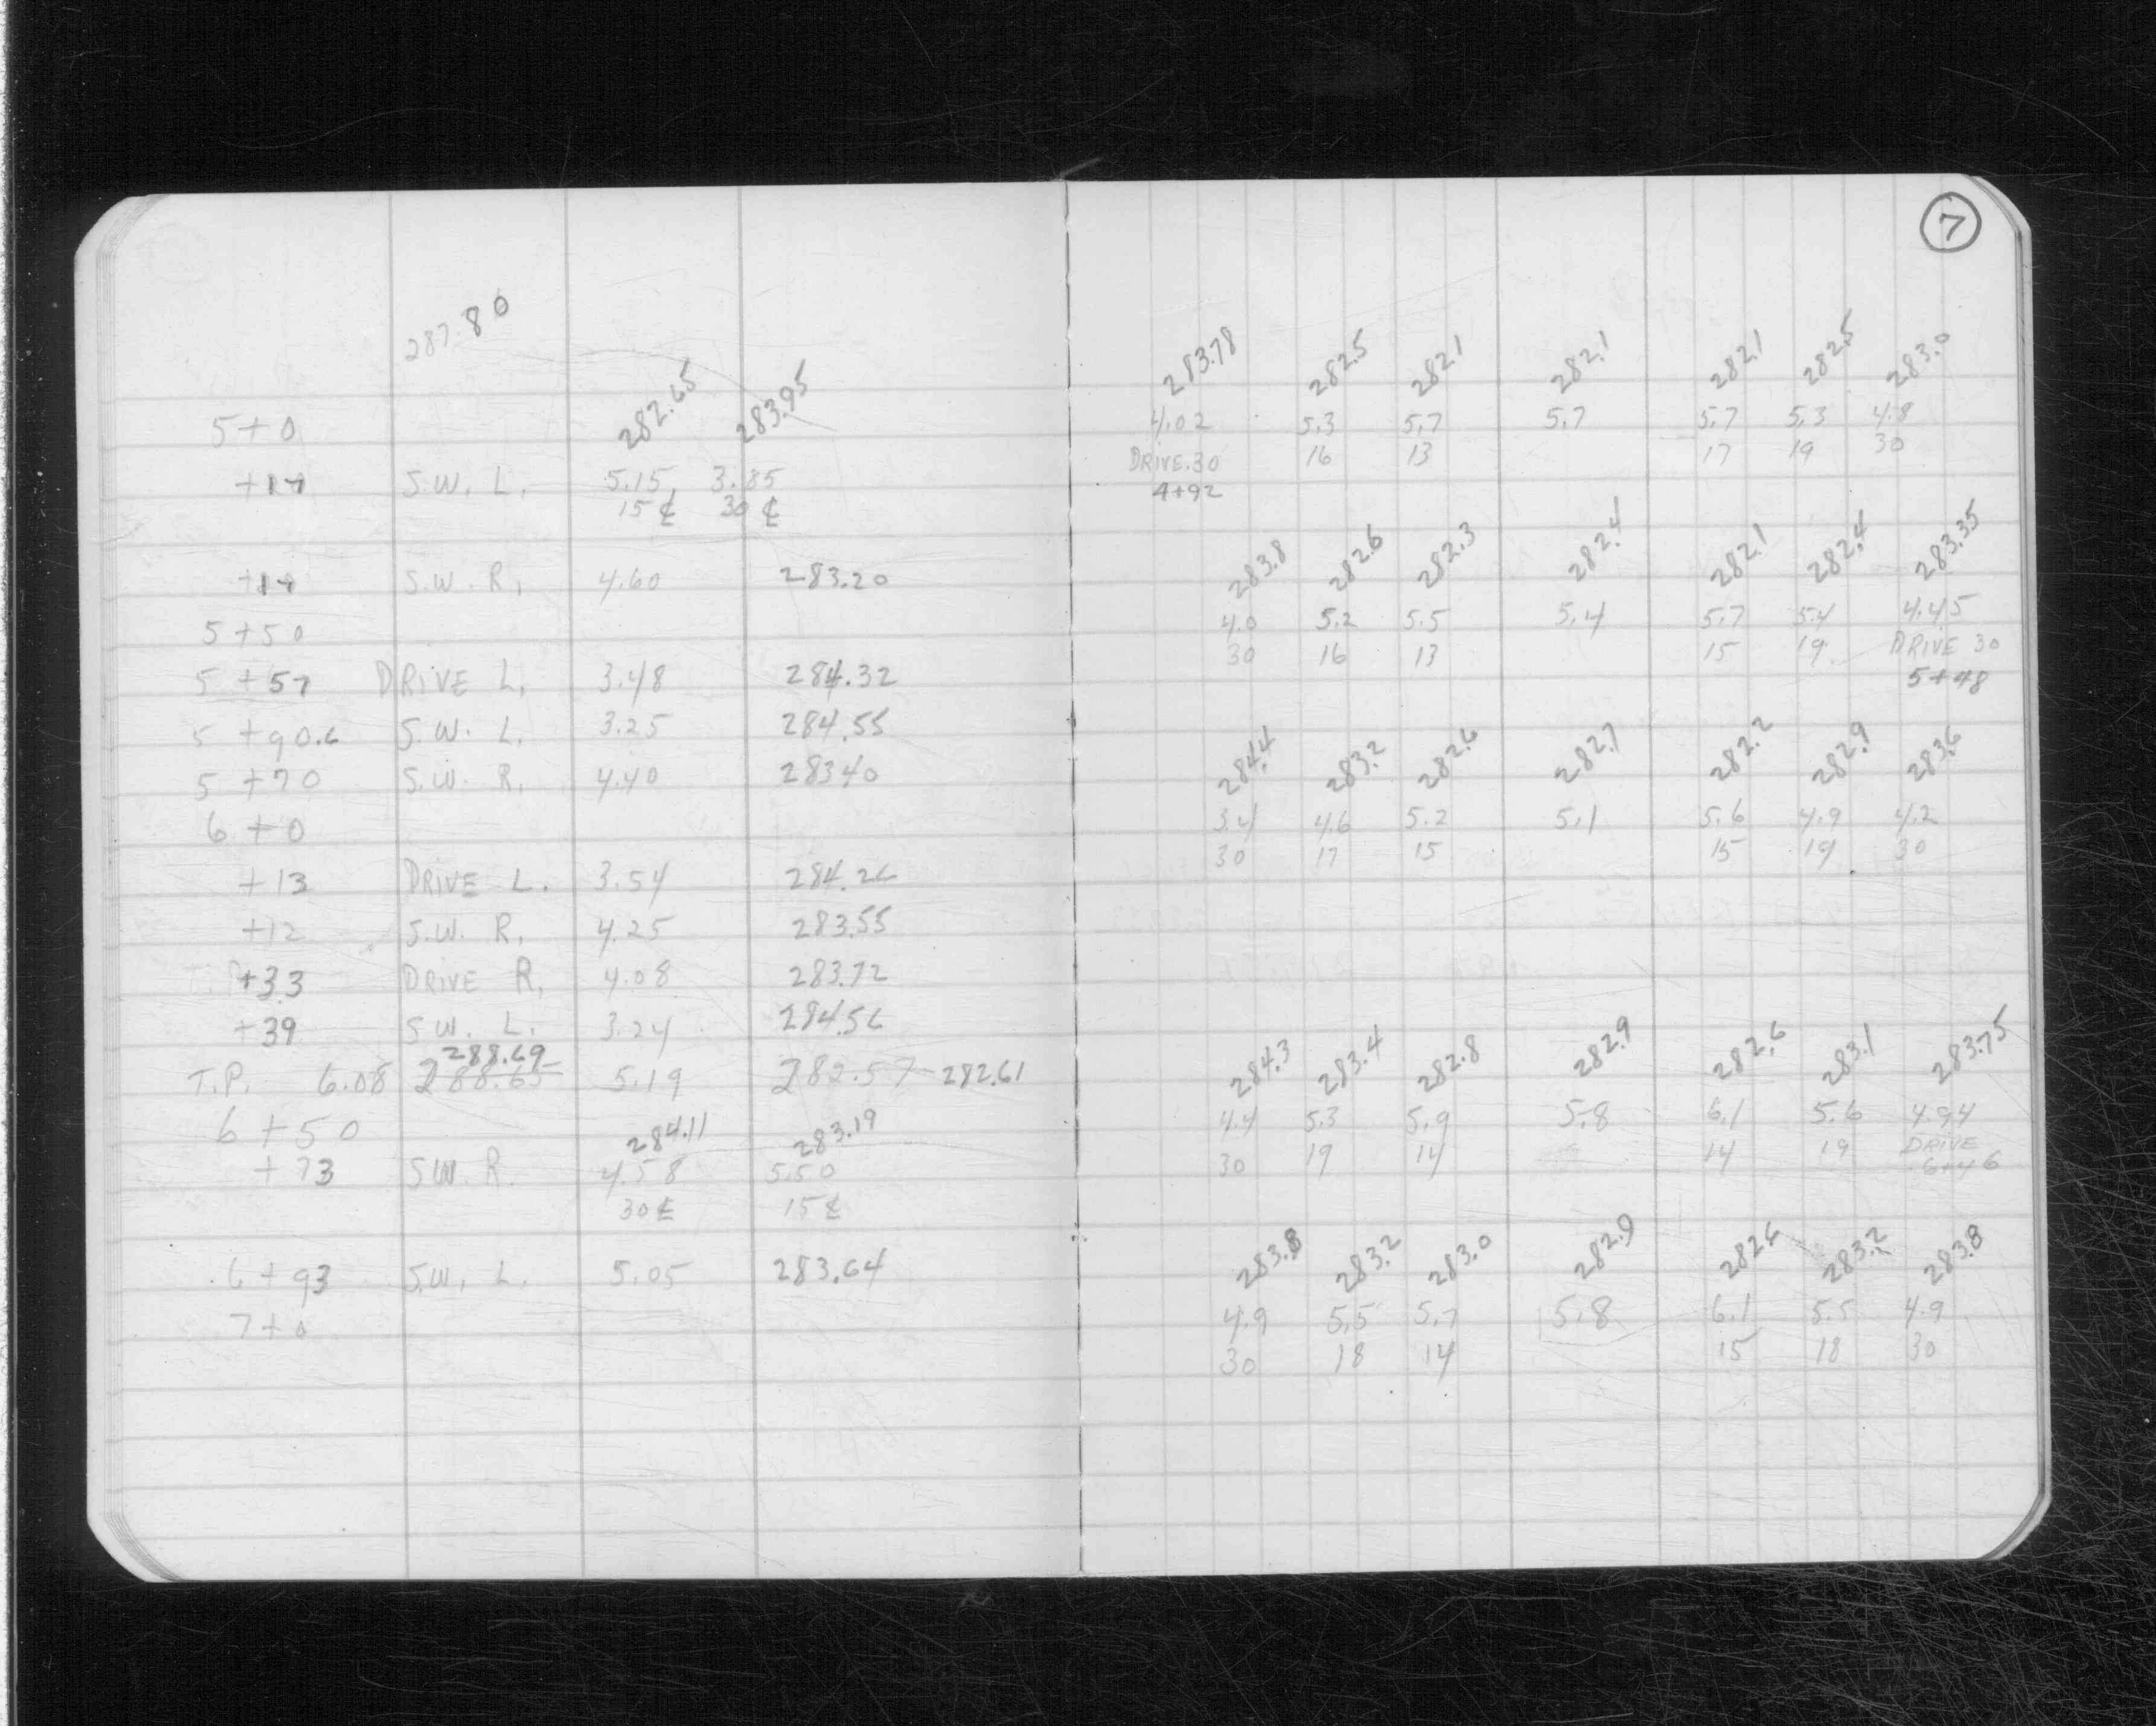 287.80
282.65 283.95
5+0
+14 S.W. L. 5.15 3.85
15 ℄ 30 ℄
+14 S.W. R. 4.60 283.20
5+50
5+57 DRIVE L. 3.48 284.32
5+90.6 S.W. L. 3.25 284.55
5+70 S.W. R. 4.40 283.40
6+0
+13 DRIVE L. 3.54 284.26
+12 S.W. R. 4.25 283.55
+33 DRIVE R. 4.08 283.72
+39 S.W. L. 3.24 284.56
288.69
T.P. 6.08 288.65 5.19 282.57 282.61
6+50
284.11 283.19
+73 S.W. R. 4.58 5.50
30 ℄ 15 ℄
6+93 S.W. L. 5.05 283.64
7+0
7
283.78 282.5 282.1 282.1 282.1 282.5 283.0
4.02 5.3 5.7 5.7 5.7 5.3 4.8
DRIVE.30 16 13 17 19 30
4+92
283.8 282.6 282.3 282.4 282.1 282.4 283.35
4.0 5.2 5.5 5.4 5.7 5.4 4.45
30 16 13 15 19 DRIVE 30
5+48
284.4 283.2 282.6 282.7 282.2 282.9 283.6
3.4 4.6 5.2 5.1 5.6 4.9 4.2
30 17 15 15 19 30
284.3 283.4 282.8 282.9 282.6 283.1 283.75
4.4 5.3 5.9 5.8 6.1 5.6 4.94
30 19 14 14 19 DRIVE
6+46
283.8 283.2 283.0 282.9 282.6 283.2 283.8
4.9 5.5 5.7 5.8 6.1 5.5 4.9
30 18 14 15 18 30